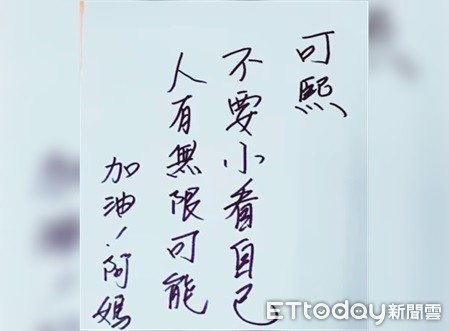 可熙
不要小看自己
人有無限可能
加油！阿媽
ETtoday新聞雲